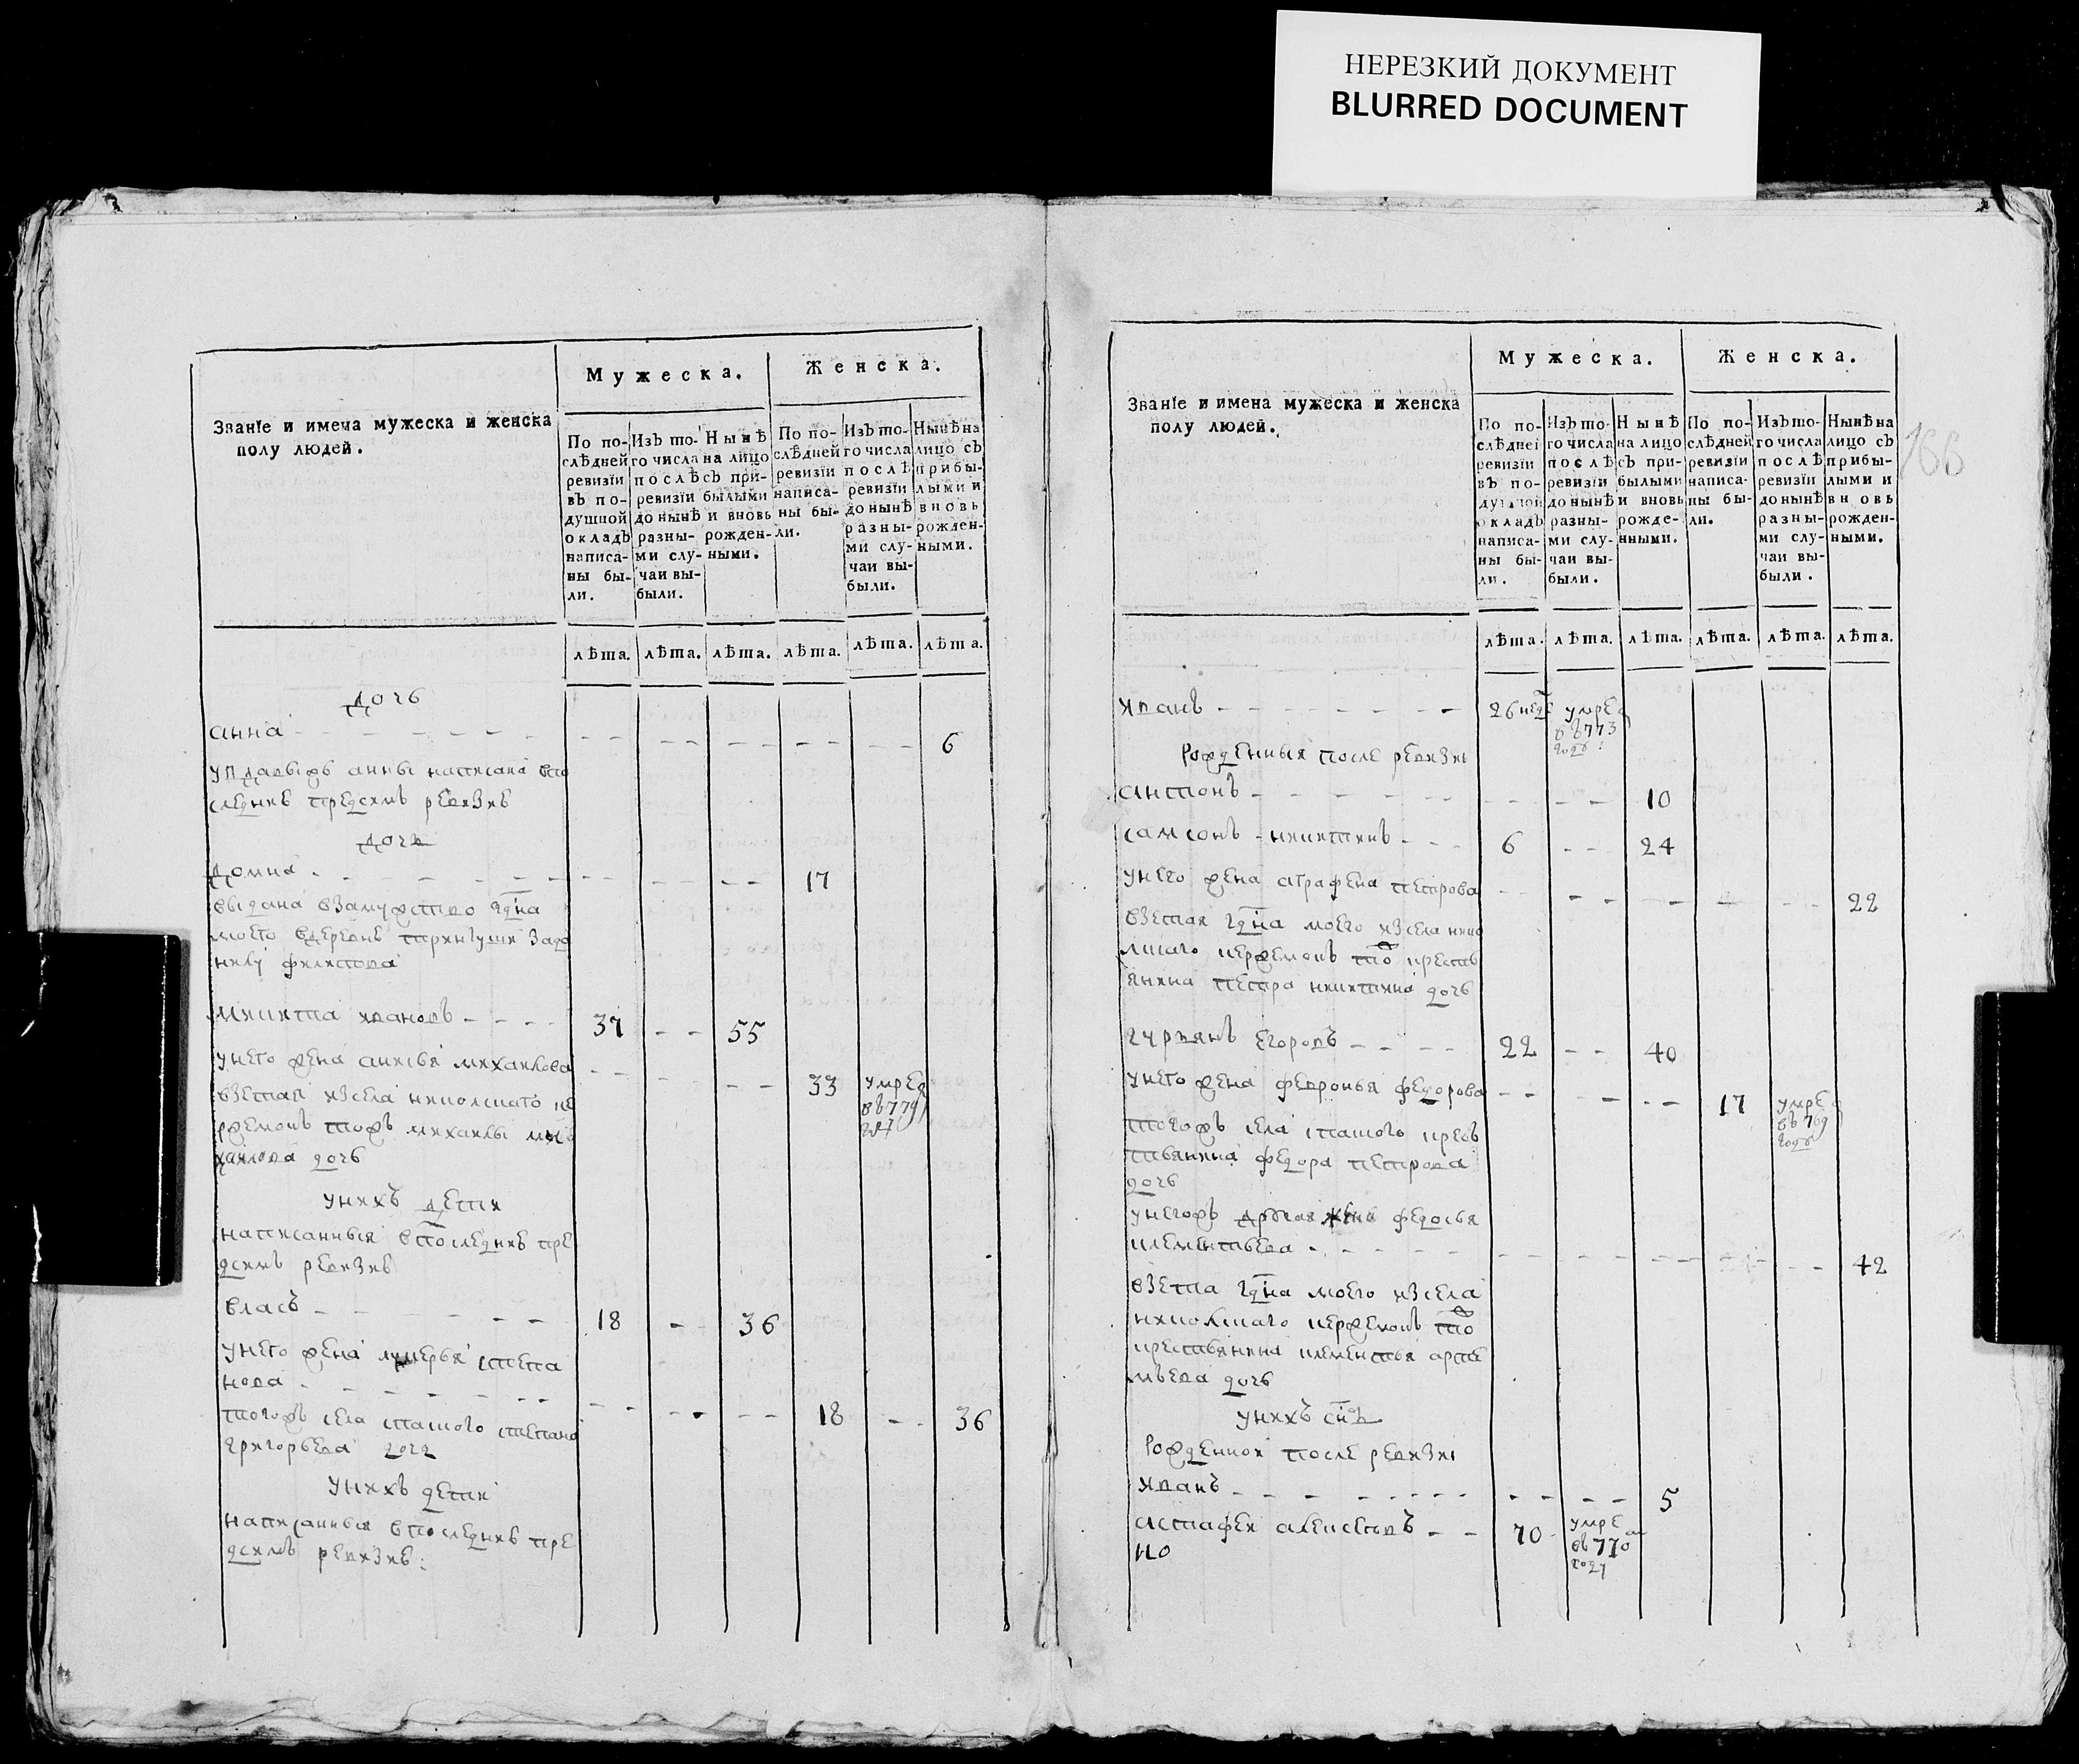 НЕРЕЗКИЙ ДОКУМЕНТ
BLURRED DOCUMENT
Званїе и имена мужеска и женска
полу людей.
Мужеска.
Женска.
По по-
слѣдней
ревизїи
въ по-
душной
окладъ
написа-
ны бы-
ли.
Изъ то-
го числа
послѣ
ревизїи
до нынѣ
разны-
ми слу-
чаи вы-
были.
Нынѣ
на лицо
съ при-
былыми
и вновь
рожден-
ными.
По по-
слѣдней
ревизїи
написа-
ны бы-
ли.
Изъ то-
го числа
послѣ
ревизїи
до нынѣ
разны-
ми слу-
чаи вы-
были.
Нынѣ на
лицо съ
прибы-
лыми и
вновь
рожден-
ными.
лѣта. лѣта. лѣта. лѣта. лѣта. лѣта.
дочь
анна 6
анны написана впо
следнеѣ предсимъ ревизиѣ
дочь
домна 17
выдана взамужство гдна
моего вдеревнѣ
филипова
микита ивановъ 37 55
унего жена михаилова 33 умре
взетая изсела
михаилы ми
хаилова дочь
унихъ дети
написанныя впоследнеѣ пре
дсимъ ревизиѣ
власъ 18 36
унего жена степа
нова 18 36
тогожъ села степана
григорьева дочь
унихъ дети
написанныя впоследнеѣ пре
дсимъ ревизиѣ:
166
Званїе и имена мужеска и женска
полу людей.
Мужеска.
Женска.
По по-
слѣдней
ревизїи
въ по-
душной
окладъ
написа-
ны бы-
ли.
Изъ то-
го числа
послѣ
ревизїи
до нынѣ
разны-
ми слу-
чаи вы-
были.
Нынѣ
на лицо
съ при-
былыми
и вновь
рожде-
нными.
По по-
слѣдней
ревизїи
написа-
ны бы-
ли.
Изъ то-
го числа
послѣ
ревизїи
до нынѣ
разны-
ми слу-
чаи вы-
были.
Нынѣ на
лицо съ
прибы-
лыми и
вновь
рожден-
ными.
лѣта. лѣта. лѣта. лѣта. лѣта. лѣта.
иванъ 26 неде умре
въ 773
году
рожденныя после ревизии
антонъ 10
самсонъ никитинъ 6 24
унего жена аграфена петрова 22
взетая гдна моего изсела нико
петра никитина дочь
гурьянъ егоровъ 22 40
унего жена февронья федорова 17 умре
въ 769
году
тогожъ села кресь
тьянина федора петрова
дочь
унегожъ другая жена федосья
клементьева 42
взета гдна моего изсела
крестьянина клементья арте
мьева дочь
унихъ снъ
рожденной после ревизии
иванъ 5
астафеи алексеевъ 70 умре
въ 770
году